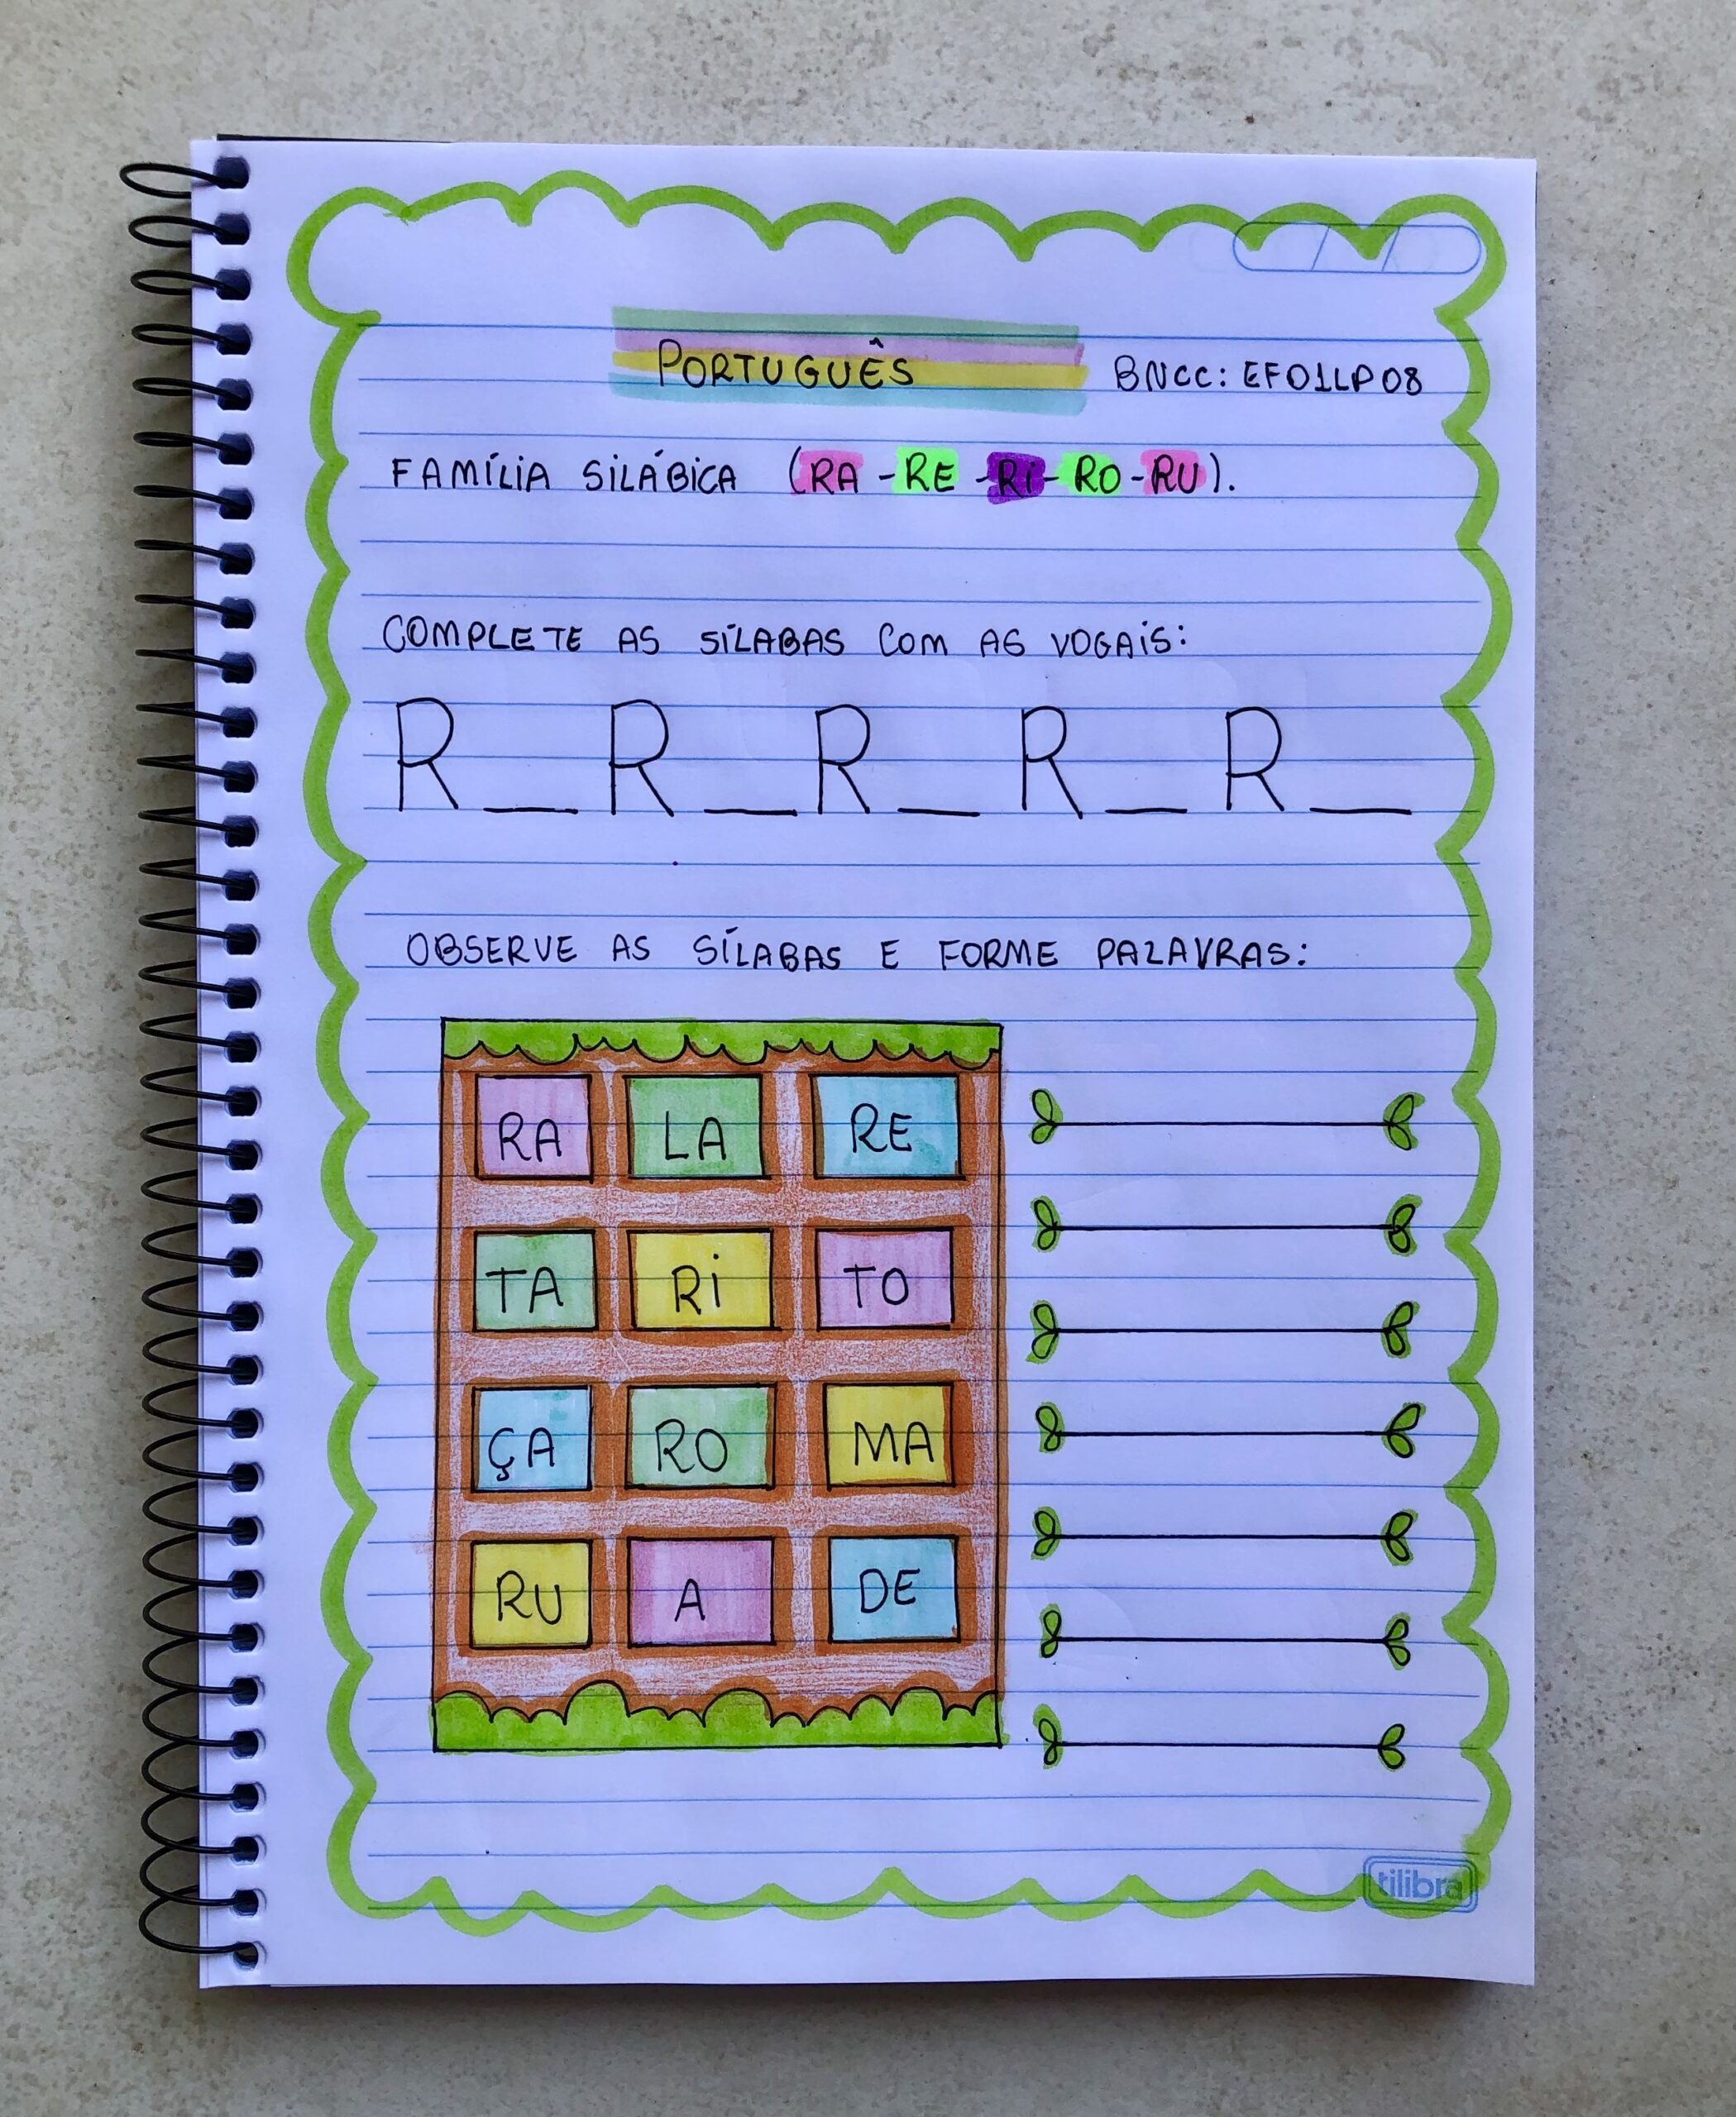 PORTUGUÊS BNCC: EF01LP08
FAMÍLIA SILÁBICA (RA - RE - Ri - RO - RU).
COMPLETE AS SÍLABAS COM AS VOGAIS:
R __ R __ R __ R __ R __
OBSERVE AS SÍLABAS E FORME PALAVRAS:
RA LA RE
TA Ri TO
ÇA RO MA
RU A DE
tilibra